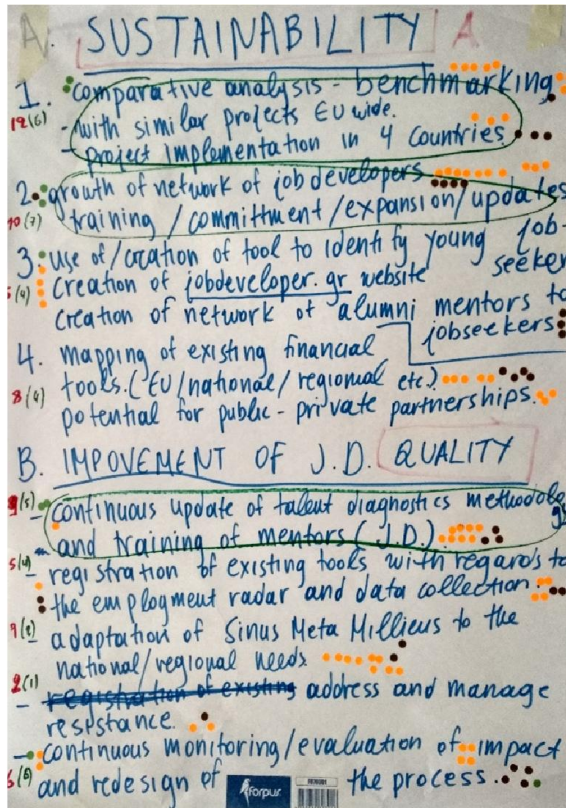 A. SUSTAINABILITY A
1. comparative analysis - benchmarking
12(6) - with similar projects EU wide.
- project implementation in 4 countries
2. growth of network of job developers
10(7) training / committment / expansion / updates
3. use of / creation of tool to identify young job-
seeker
creation of jobdeveloper.gr website
creation of network of alumni mentors to
jobseekers
4. mapping of existing financial
8(4) tools. (EU/national/regional etc.)
potential for public - private partnerships.
B. IMPOVEMENT OF J.D. QUALITY
- continuous update of talent diagnostics
and training of mentors (J.D.)
- registration of existing tools with regards to
the employment radar and data collection.
- adaptation of Sinus Meta Millieus to the
national/regional needs
2(1)
- registration of existing address and manage
resistance.
- continuous monitoring/evaluation of impact
and redesign of the process.
Forpus